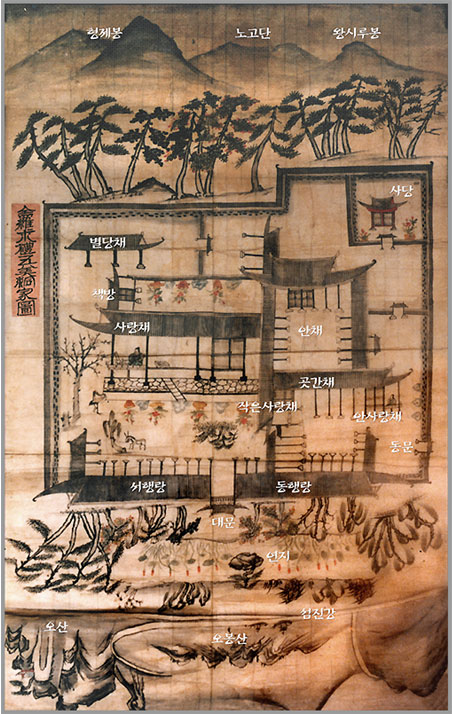 형제봉
노고단
왕시루봉
사당
全羅求禮五美洞家圖
별당채
책방
사랑채
안채
곳간채
작은사랑채
안사랑채
동문
서행랑
동행랑
대문
연지
섬진강
오산
오봉산